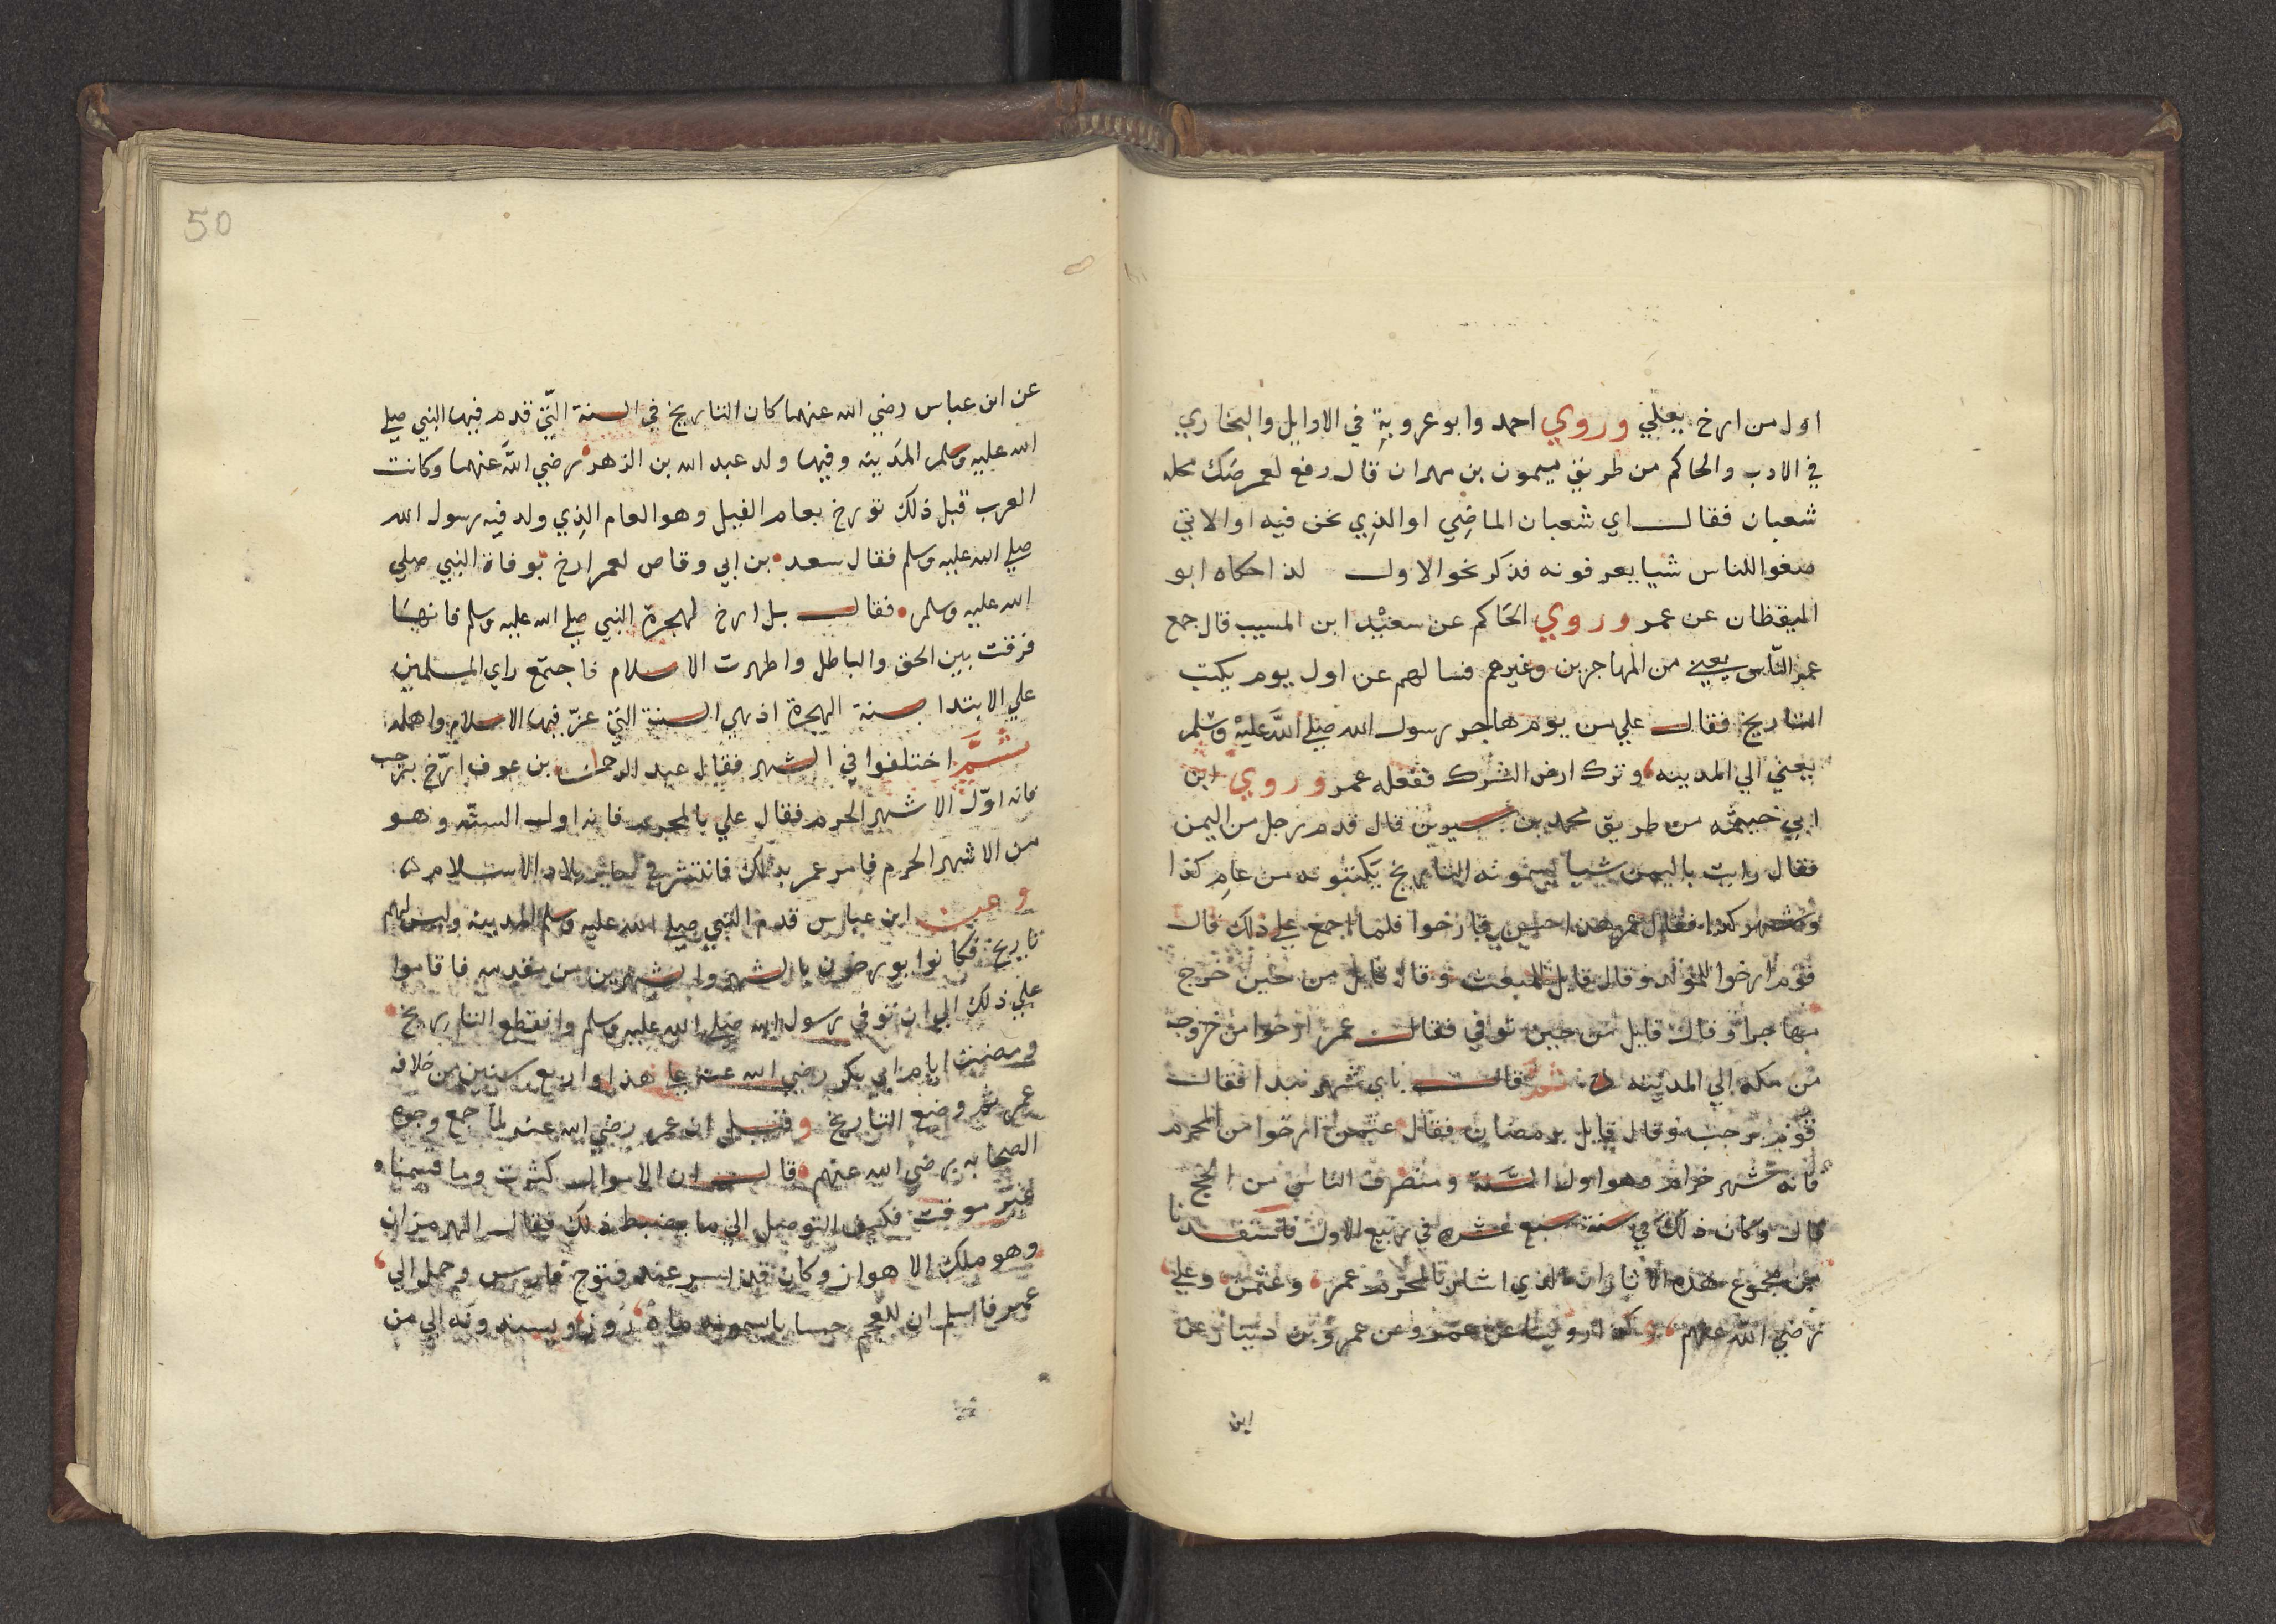 اول من ارخ يعلي وروي احمد وابو عروبة في الاوايل والبخاري
في الادب والحاكم من طريق ميمون بن مهران قال رفع لعمر صك محله
شعبان فقال اي شعبان الماضي او الذي نحن فيه او الاتي
ضعوا للناس شيا يعرفونه فذكر نحو الاول لذا حكاه ابو
اليقظان عن عمر وروي الحاكم عن سعيد ابن المسيب قال جمع
عمر الناس يعني من المهاجرين وغيرهم فسالهم عن اول يوم يكتب
التاريخ فقال علي من يوم هاجر رسول الله صلي الله عليه وسلم
يعني الي المدينه وترك ارض الشرك ففعله عمر وروي ابن
ابي خيثمه من طريق محمد بن سيرين قال قدم رجل من اليمن
فقال رايت باليمن شيا يسمونه التاريخ يكتبونه من عام كذا
وشهر كذا فقال عمر هذا حسن فارخوا فلما اجمع علي ذلك قال
قوم ارخوا للمولد وقال قايل للمبعث وقال قايل من حين خرج
مهاجرا وقال قايل من حين توفي فقال عمر ارخوا من خروجه
من مكه الي المدينه ثم قال باي شهر نبدا فقال
قوم برجب وقال قايل برمضان فقال عثمن ارخوا من المحرم
فانه شهر حرام وهو اول السنة ومنصرف الناس من الحج
قال وكان ذلك في سنة سبع عشره في ربيع الاول فاستفدنا
من مجموع هذه الاثار ان الذي اشار بالمحرم عمر وعثمن وعلي
رضي الله عنهم وكذا روينا عن عمر وعن عمرو بن دينار عن
ابن
50
عن ابن عباس رضي الله عنهما كان التاريخ في السنة التي قدم فيها النبي صلي
الله عليه وسلم المدينه وفيها ولد عبد الله بن الزهر رضي الله عنهما وكانت
العرب قبل ذلك تورخ بعام الفيل وهو العام الذي ولد فيه رسول الله
صلي الله عليه وسلم فقال سعد بن ابي وقاص لعمر ارخ بوفاة النبي صلي
الله عليه وسلم فقال بل ارخ لهجرة النبي صلي الله عليه وسلم فانها
فرقت بين الحق والباطل واظهرت الاسلام فاجتمع راي المسلمين
علي الابتدا بسنة الهجرة اذ هي السنة التي عز فيها الاسلام واهله
ثم اختلفوا في الشهر فقال عبد الرحمان بن عوف ارخ برجب
فانه اول الاشهر الحرم فقال علي بالمحرم فانه اول السنه وهو
من الاشهر الحرم فامر عمر بذلك فانتشر في ساير بلاد الاسلام
وعن ابن عباس قدم النبي صلي الله عليه وسلم المدينه وليس لهم
تاريخ فكانوا يورخون بالشهر والشهرين من مقدمه فاقاموا
علي ذلك الي ان توفي رسول الله صلي الله عليه وسلم وانقطع التاريخ
ومضت ايام ابي بكر رضي الله عنه علي هذا واربع سنين من خلافه
عمر ثم وضع التاريخ وقيل ان عمر رضي الله عنه لما جمع وجوه
الصحابه رضي الله عنهم قال ان الاموال كثرت وما قسمناه
غير موقت فكيف التوصل الي ما يضبط ذلك فقال الهرمزان
وهو ملك الاهواز وكان قد اسر عند فتوح فارس وحمل الي
عمر فاسلم ان للعجم حسابا يسمونه ماه روز ويسندونه الي من